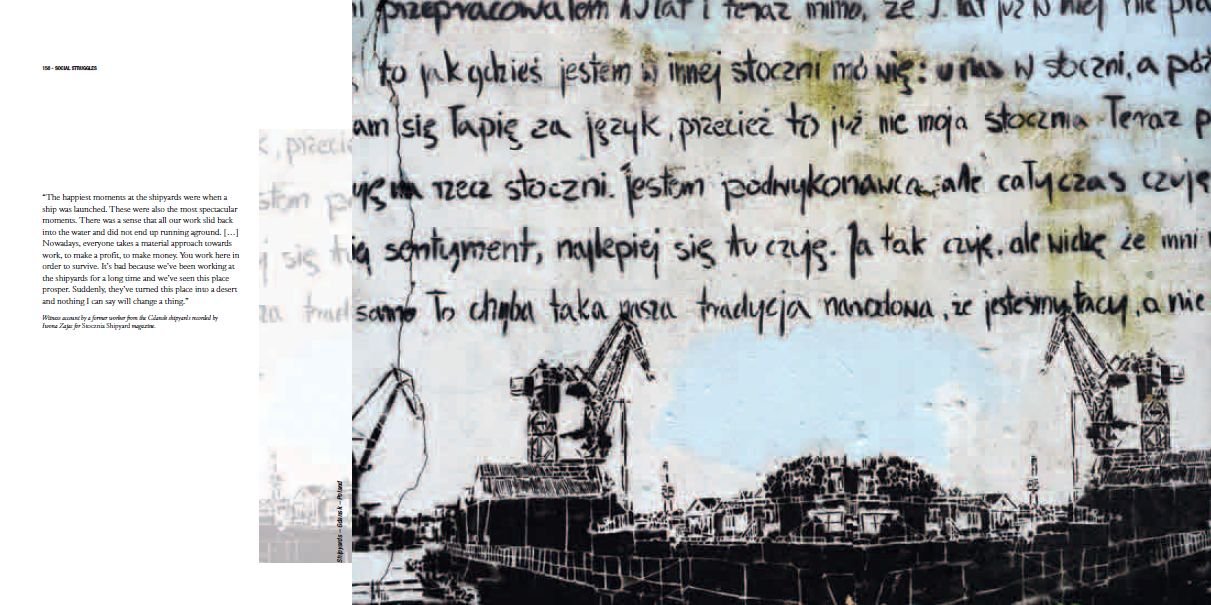 SOCIAL STRUGGLES
“The happiest moments at the shipyards were when a
ship was launched. These were also the most spectacular
moments. There was a sense that all our work slid back
into the water and did not end up running aground. […]
Nowadays, everyone takes a material approach towards
work, to make a profit, to make money. You work here in
order to survive. It’s bad because we’ve been working at
the shipyards for a long time and we’ve seen this place
prosper. Suddenly, they’ve turned this place into a desert
and nothing I can say will change a thing.”
Witness account by a former worker from the Gdansk shipyards recorded by
Iwona Zając for Stocznia Shipyard magazine.
Shipyards – Gdansk – Poland
przepracowałem lat i teraz mimo, że lat już w niej nie
to jak gdzieś jestem w innej stoczni mówię: u nas w stoczni, a
am się łapię za język, przecież to już nie moja stocznia. Teraz p
na rzecz stoczni. Jestem podwykonawcą, ale cały czas czuję
sentyment, najlepiej się tu czuję. Ja tak czuję, ale widzę że inni
samo To chyba taka nasza tradycja narodowa, że jesteśmy tacy, a nie